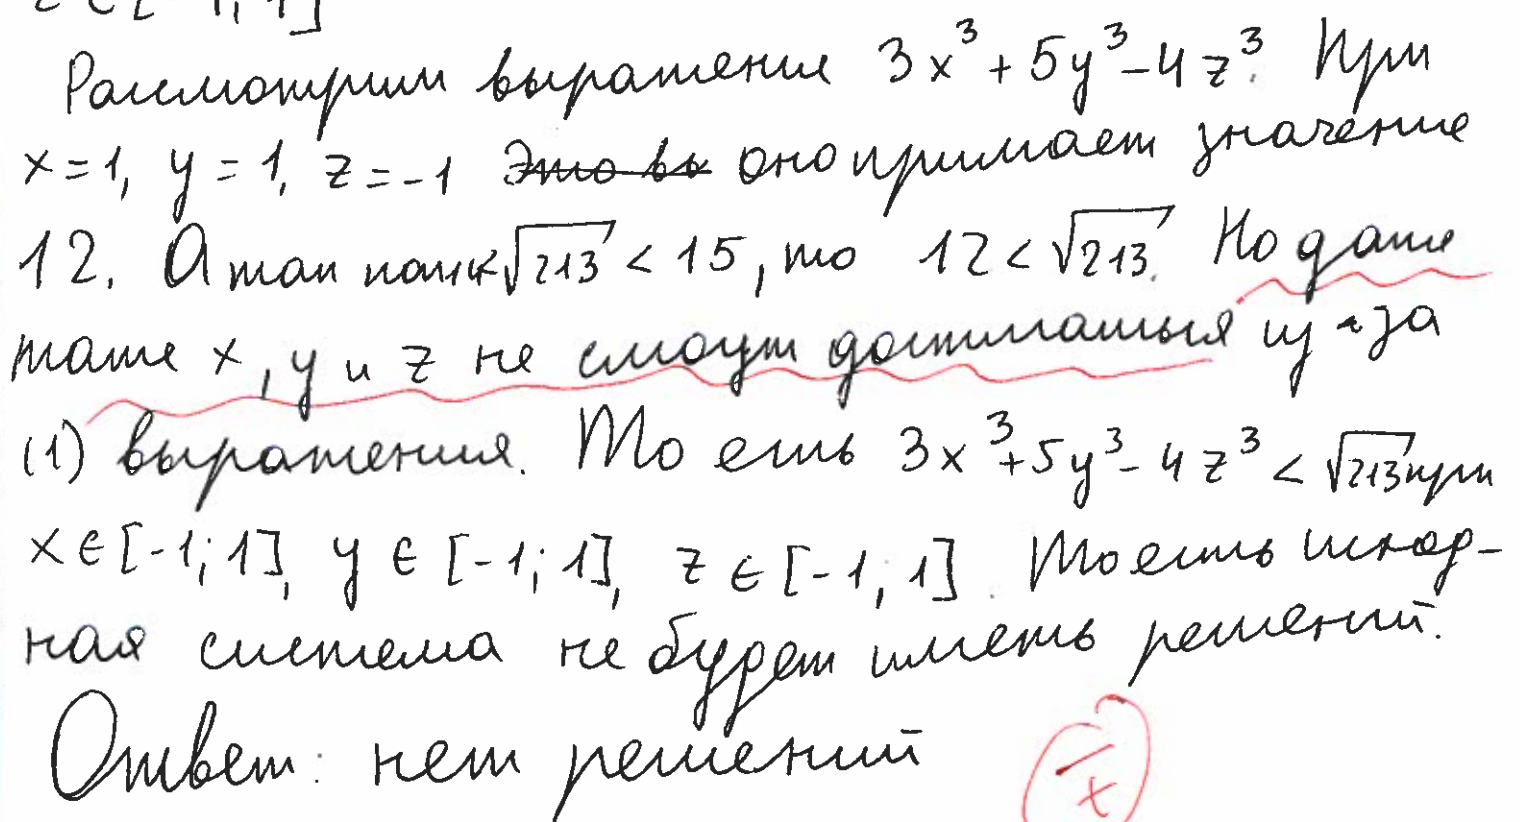 z ∈ [-1; 1]
Рассмотрим выражение 3x³ + 5y³ - 4z³. При
x = 1, y = 1, z = -1 Это вы оно примает значение
12. А так как √213 < 15, то 12 < √213. Но даже
такие x, y и z не смогут достигаться из-за
(1) выражения. То есть 3x³ + 5y³ - 4z³ < √213 при
x ∈ [-1; 1], y ∈ [-1; 1], z ∈ [-1, 1]. То есть исход-
ная система не будет иметь решений.
Ответ: нет решений